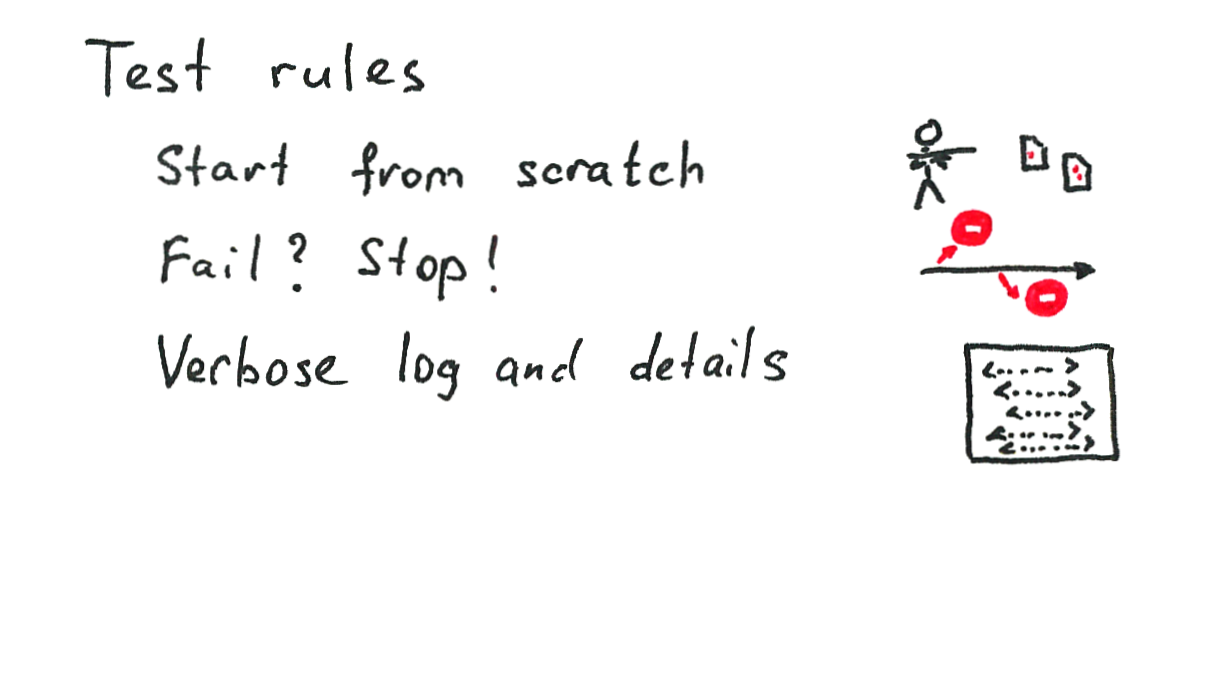 Test rules
Start from scratch
Fail? Stop!
Verbose log and details